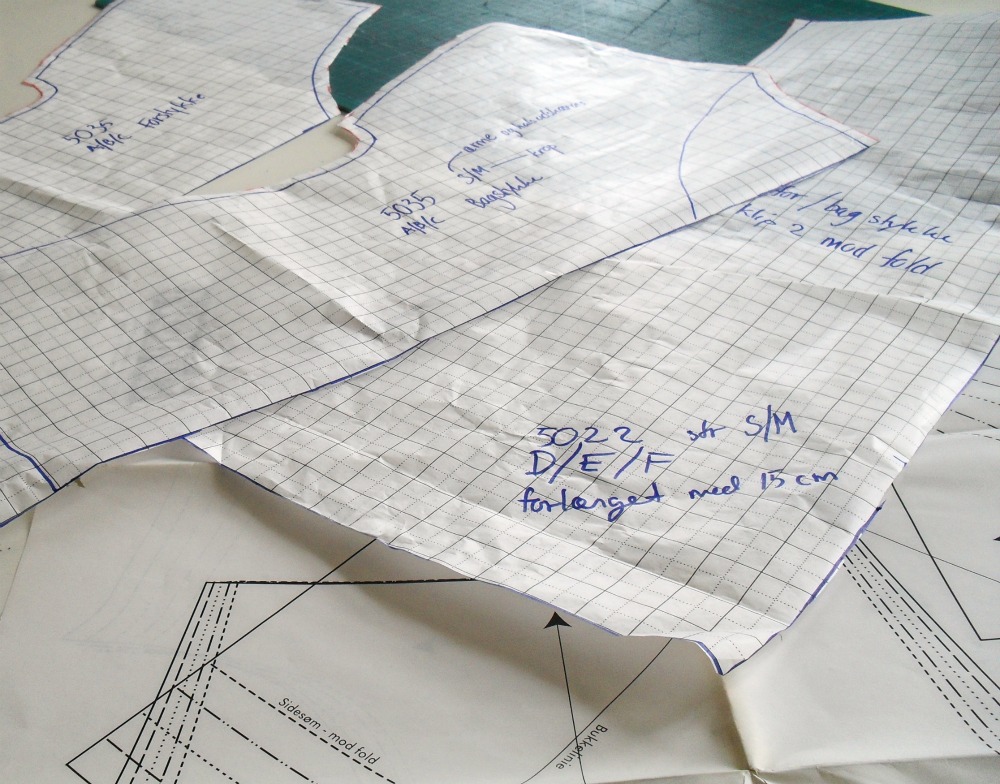 5035
A/B/C Forstykke
5035
A/B/C
arme og halsudskæring
S/M — krop
Bagstykke
for/bagstykke
klip 2 mod fold
5022 str S/M
D/E/F
forlænget med 15 cm
Sidesøm - mod fold
Bukkelinie